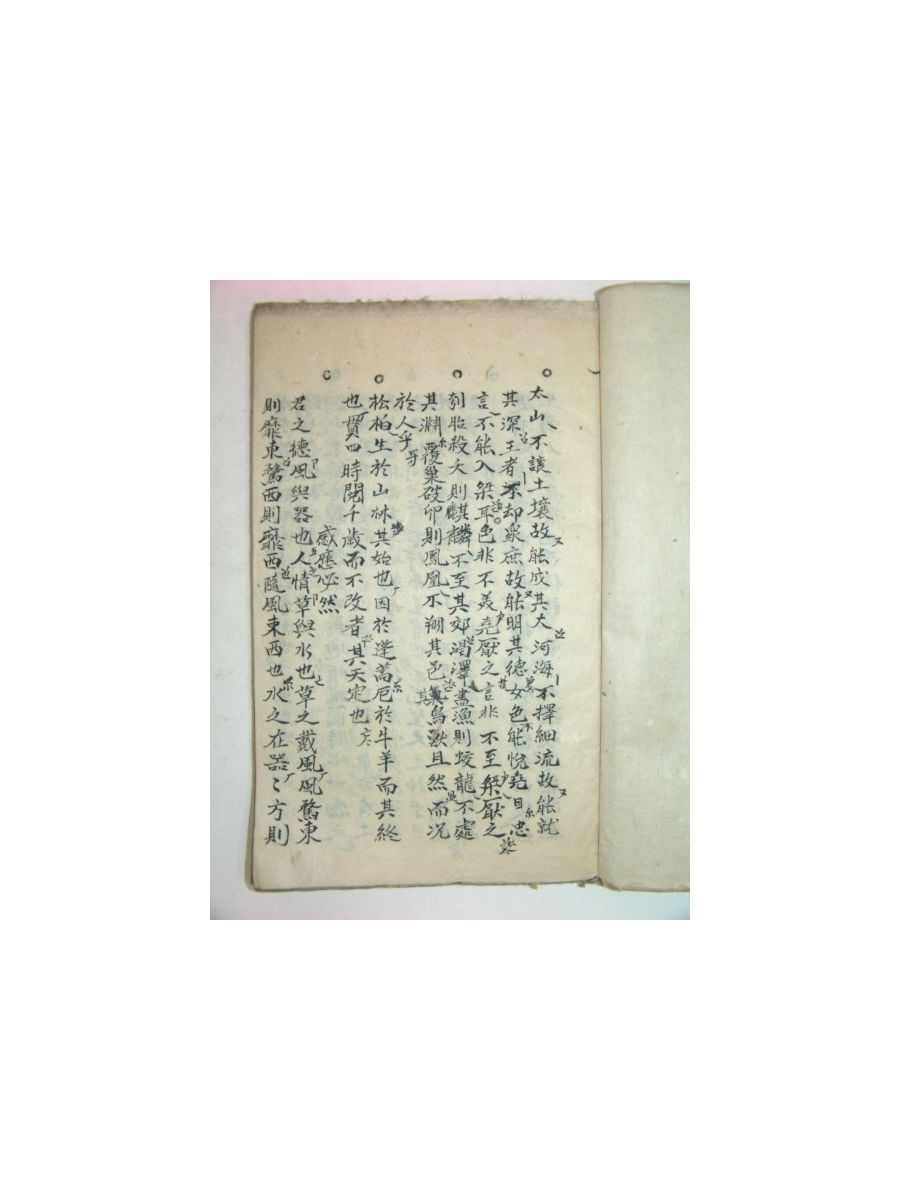 太山不讓土壤故能成其大河海不擇細流故能就
其深王者不却衆庶故能明其德女色能悅堯目忠
言不能入桀耳色非不美堯厭之言非不至桀厭之
刳胎殺夭則麒麟不至其郊渴澤盡漁則蛟龍不處
其淵覆巢破卵則鳳凰不翔其邑其鳥獸且然而况
於人乎
松柏生於山林其始也因於蓬蒿厄於牛羊而其終
也貫四時閱千歲而不改者其天定也
感應必然
君之德風與器也人情草與水也草之戴風風騖東
則靡東騖西則靡西隨風東西也水之在器〻方則